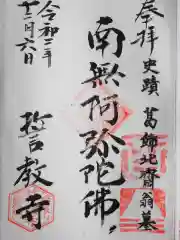 奉拝
史蹟 葛飾北齋翁墓
南無阿弥陀佛
誓教寺
令和二年
十二月六日